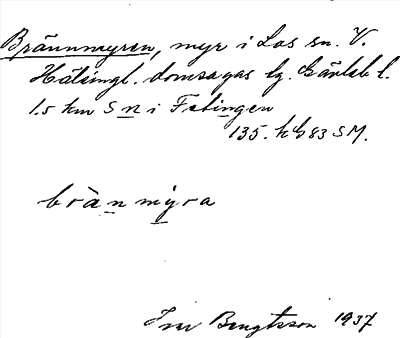 Brännmyren, myr i Los sn. V.
Hälsingl. domsagas tg. Gävleb l.
1.5 km S n i Fstingen
135. h b 83 SM.
bràn mýra
Ivar Bengtsson 1937